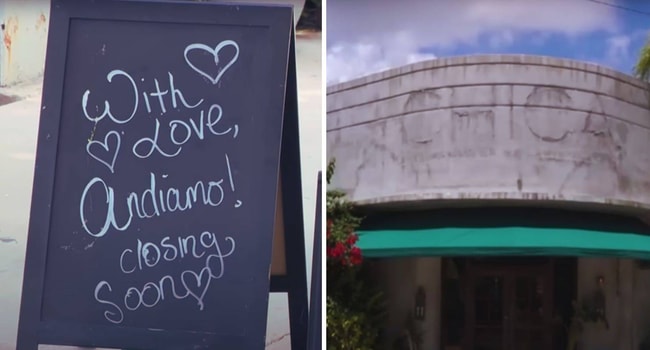 With
Love,
Andiamo!
closing
Soon